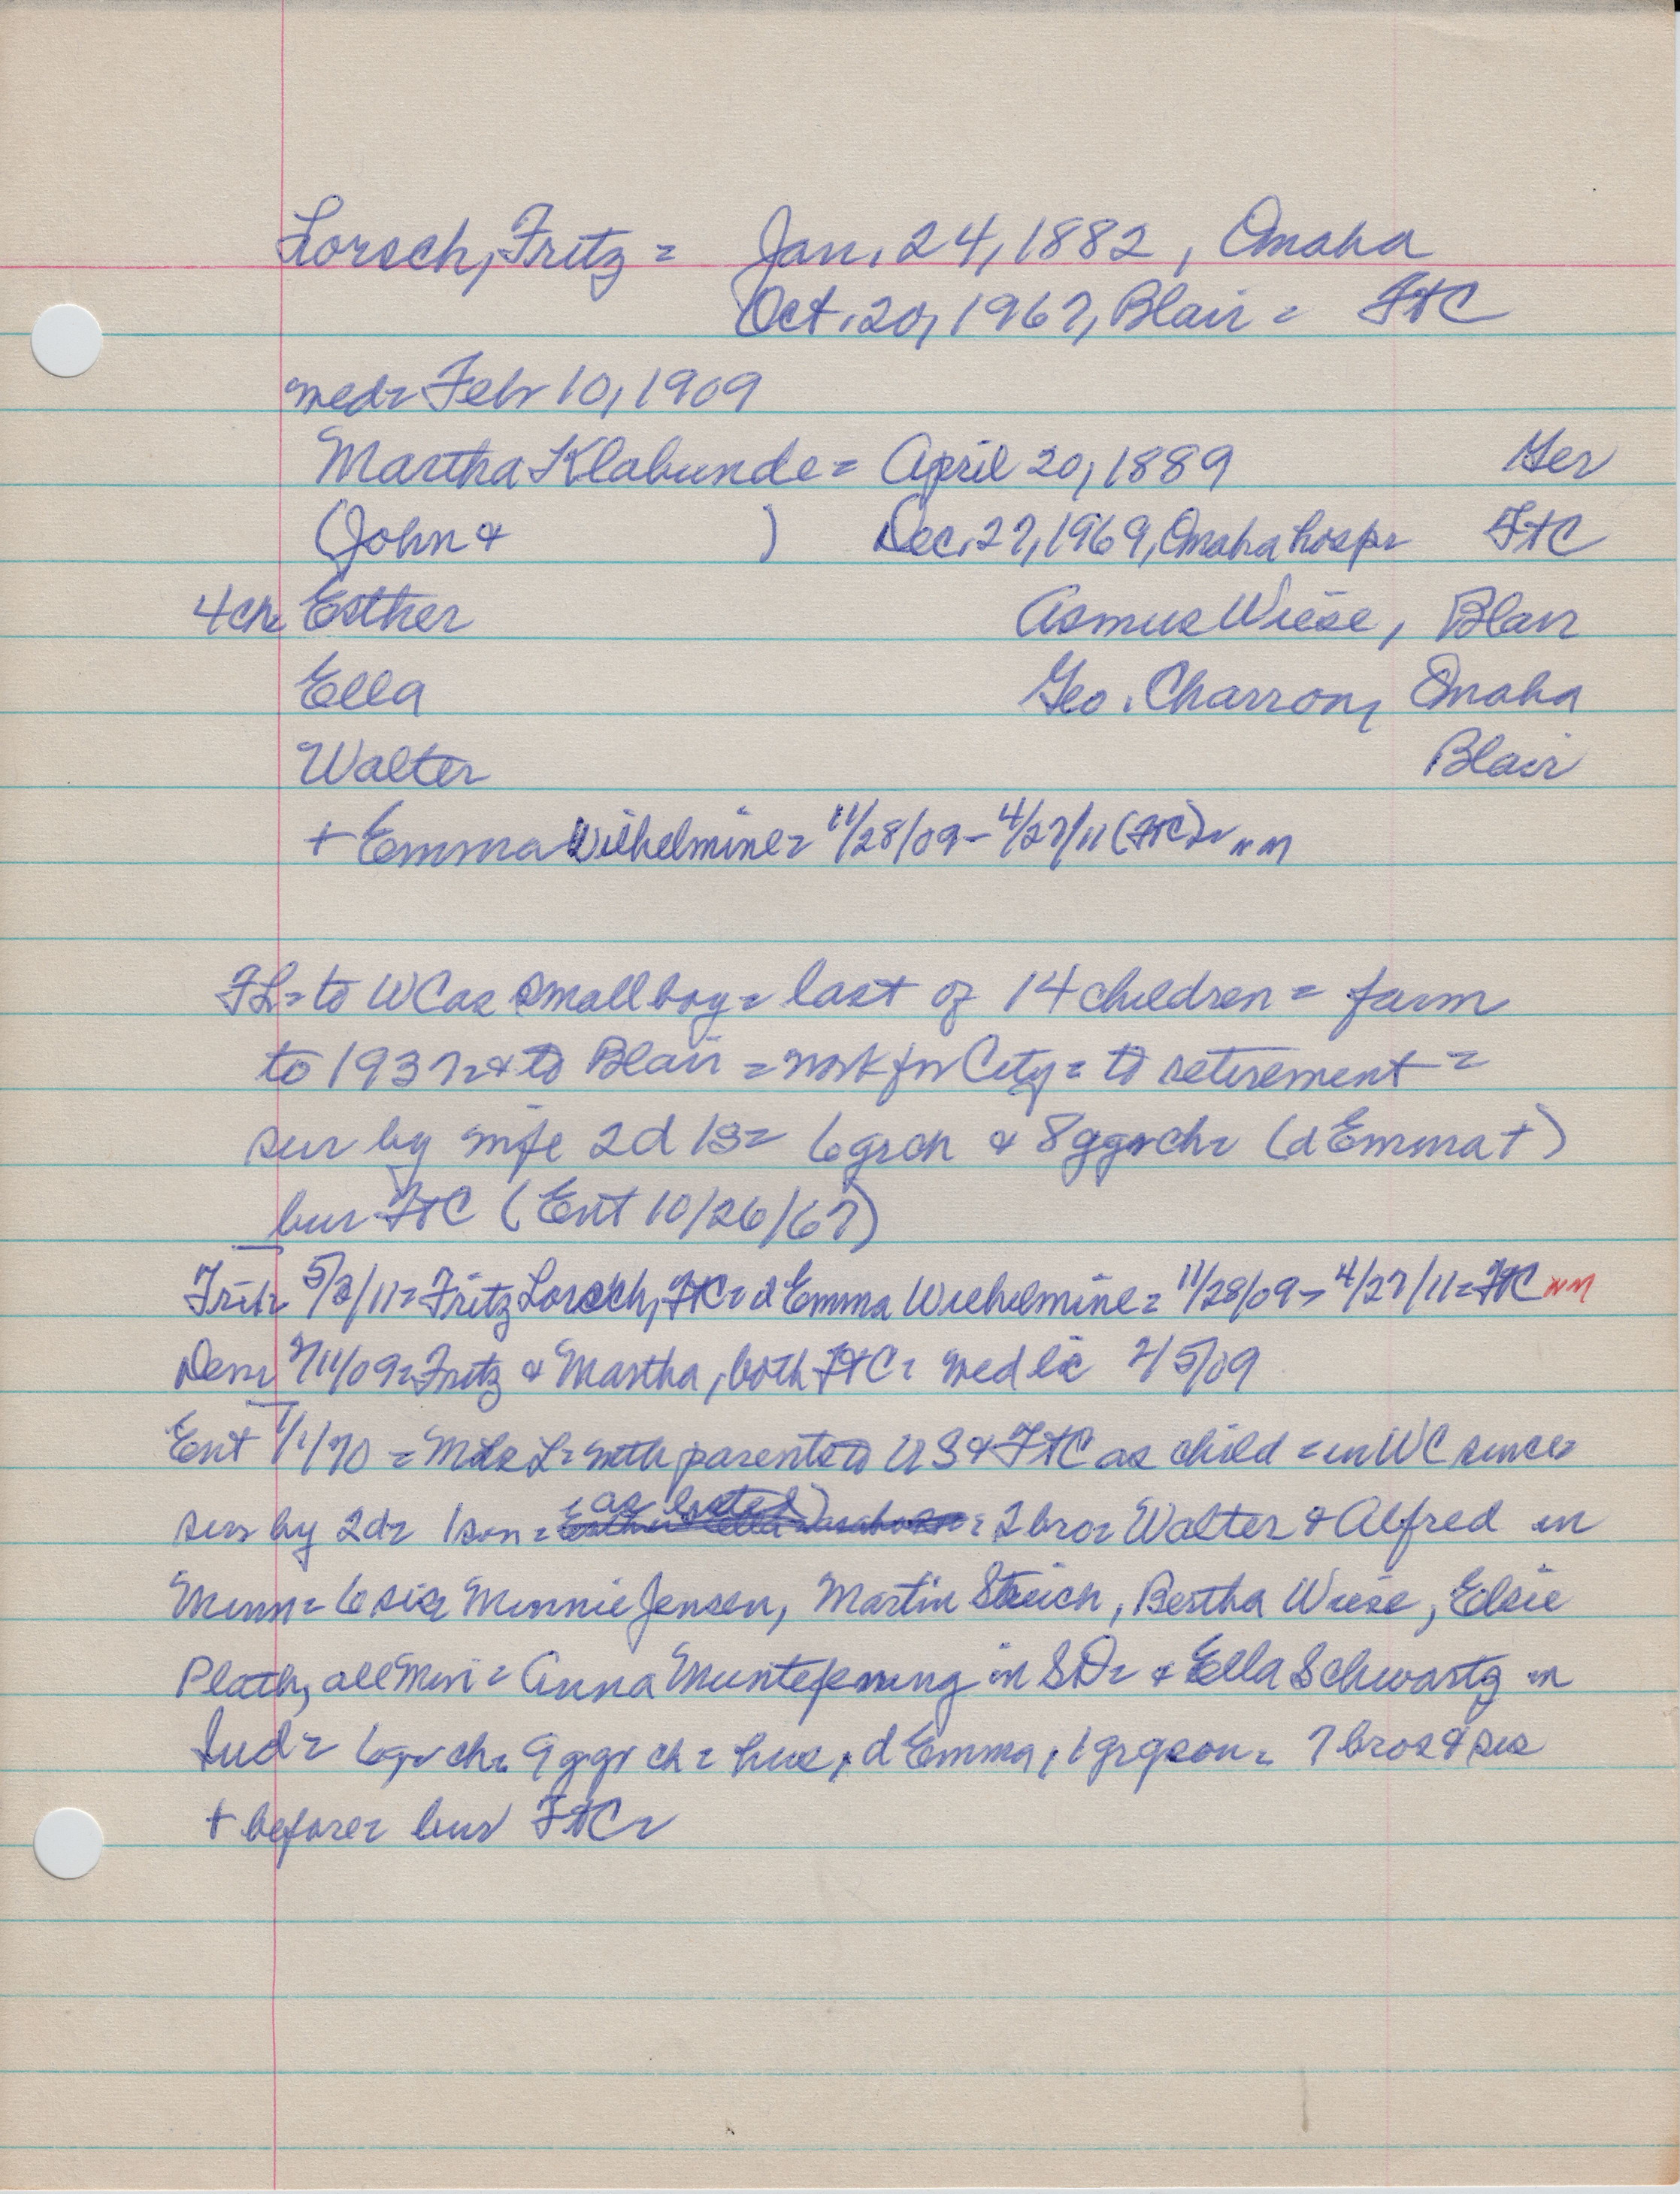 Lorsch, Fritz = Jan. 24, 1882, Omaha
Oct. 20, 1967, Blair = FtC
wed = Febr 10, 1909
Martha Klabunde = April 20, 1889 Ger
(John & ) Dec. 27, 1969, Omaha hosp = FtC
4ch = Esther Asmus Wiese, Blair
Ella Geo. Charron, Omaha
Walter Blair
+ Emma Wilhelmine = 11/28/09 - 4/27/11 (FtC) =
FL = to WC as small boy = last of 14 children = farm
to 1937 = & to Blair = work for City = to retirement =
sur by wife 2d 1s = 6grch & 8ggrch = (d Emma +)
bur FtC (Ent 10/26/67)
Trib = 5/3/11 = Fritz Lorsch, FtC = d Emma Wilhelmine = 11/28/09 - 4/27/11 = FtC
Dem = /11/09 = Fritz & Martha, both FtC = wed lic 2/5/09
Ent 1/1/70 = Mrs L = with parents to US & FtC as child = in WC since =
sur by 2d = 1son = (as listed) = 2bro = Walter & Alfred in
Minn = 6sis = Minnie Jensen, Martin Streich, Bertha Wiese, Elsie
Plath, all Minn = Anna in SD = & Ella Schwartz in
Ind = 6grch = 9ggrch = hus, d Emma, 1grgson = 7 bros & sis
+ before = bur FtC =